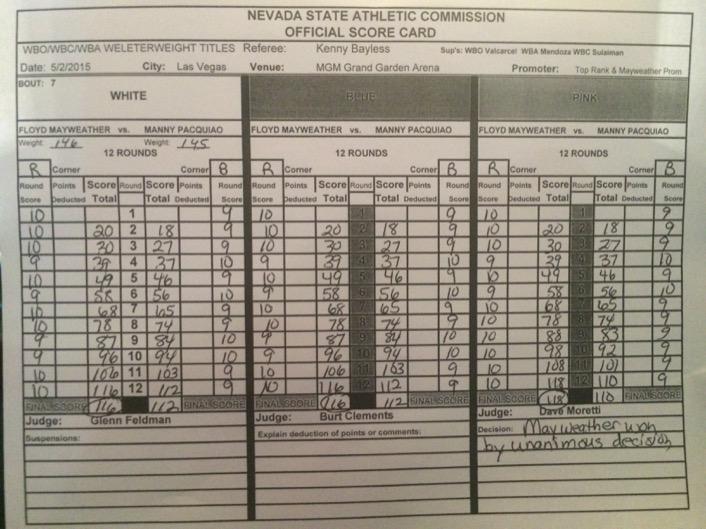 NEVADA STATE ATHLETIC COMMISSION
OFFICIAL SCORE CARD
WBO/WBC/WBA WELETERWEIGHT TITLES Referee: Kenny Bayless Sup's: WBO Valcarcel WBA Mendoza WBC Sulaiman
Date: 5/2/2015 City: Las Vegas Venue: MGM Grand Garden Arena Promoter: Top Rank & Mayweather Prom
BOUT: 7
WHITE BLUE PINK
FLOYD MAYWEATHER vs. MANNY PACQUIAO FLOYD MAYWEATHER vs. MANNY PACQUIAO FLOYD MAYWEATHER vs. MANNY PACQUIAO
Weight 146 Weight 145
12 ROUNDS 12 ROUNDS 12 ROUNDS
R Corner Corner B R Corner Corner B R Corner Corner B
Round Points Score Round Score Points Round Round Points Score Round Score Points Round Round Points Score Round Score Points Round
Score Deducted Total Total Deducted Score Score Deducted Total Total Deducted Score Score Deducted Total Total Deducted Score
10 1 9 10 1 9 10 1 9
10 20 2 18 9 10 20 2 18 9 10 20 2 18 9
10 30 3 27 9 10 30 3 27 9 10 30 3 27 9
9 39 4 37 10 9 39 4 37 10 9 39 4 37 10
10 49 5 46 9 10 49 5 46 9 10 49 5 46 9
9 58 6 56 10 9 58 6 56 10 9 58 6 56 10
10 68 7 65 9 10 68 7 65 9 10 68 7 65 9
10 78 8 74 9 10 78 8 74 9 10 78 8 74 9
9 87 9 84 10 9 87 9 84 10 10 88 9 83 9
9 96 10 94 10 9 96 10 94 10 10 98 10 92 9
10 106 11 103 9 10 106 11 103 9 10 108 11 101 9
10 116 12 112 9 10 116 12 112 9 10 118 12 110 9
FINAL SCORE 116 112 FINAL SCORE FINAL SCORE 116 112 FINAL SCORE FINAL SCORE 118 110 FINAL SCORE
Judge: Glenn Feldman Judge: Burt Clements Judge: Dave Moretti
Suspensions: Explain deduction of points or comments: Decision: Mayweather won
by unanimous decision